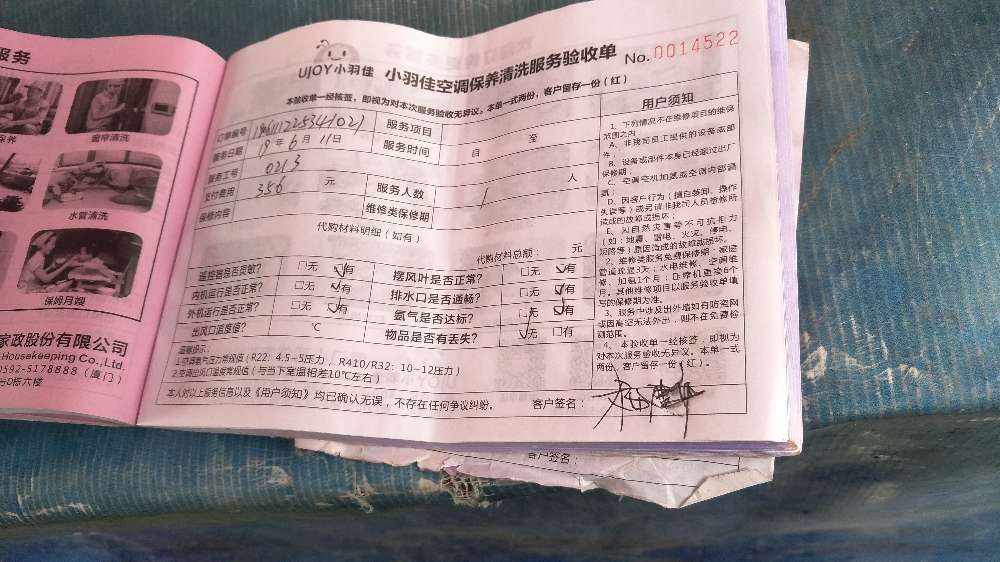 服务
窗帘清洗
保养
水管清洗
保姆月嫂
家政股份有限公司
Housekeeping Co.,Ltd.
0592-5178888（厦门）
号D栋六楼
UJOY小羽佳 小羽佳空调保养清洗服务验收单 No.0014522
本验收单一经核签，即视为对本次服务验收无异议。本单一式两份，客户留存一份（红）
订单编号 服务项目
服务日期 19年6月11日 服务时间 自 至
服务工号 0213
支付费用 356 元 服务人数 1 人
保修内容 维修类保修期
代购材料明细（如有）
代购材料总额： 元
遥控器是否灵敏？ □无 ☑有 摆风叶是否正常？ □无 ☑有
内机运行是否正常？ □无 ☑有 排水口是否通畅？ □无 ☑有
外机运行是否正常？ □无 ☑有 氨气是否达标？ □无 ☑有
出风口温度值？ ℃ 物品是否有丢失？ ☑无 □有
温馨提示：
1.空调氨气压力常规值（R22: 4.5-5压力，R410/R32: 10-12压力）
2.空调出风口温度常规值（与当下室温相差10℃左右）
本人对以上服务信息以及《用户须知》均已确认无误，不存在任何争议纠纷。 客户签名：
用户须知
1、下列情况不在维修项目的维保
范围之内
A、非我司员工提供的设备或部
件；
B、设备或部件本身已经超过出厂
保修期；
C、空调空机加氨或空调内部漏
氨；
D、因客户行为（擅自装卸、操作
失误等）或另请非我司人员维修所
造成的故障或损坏；
E、对自然灾害等不可抗拒力
（如：地震、雷电、火灾、停电、
短路等）原因造成的故障或损坏。
2、维修类服务免费保修期：家庭
管道疏通3天；水电维修、空调维
修、加氨1个月；
月。其他维修项目以服务验收单填
写的保修期为准。
3、服务中涉及出外墙如有防盗网
或因高空无法外出，则不在免费检
测范围。
4、本验收单一经核签，即视为
对本次服务验收无异议。本单一式
两份，客户留存一份（红）。
客户签名：